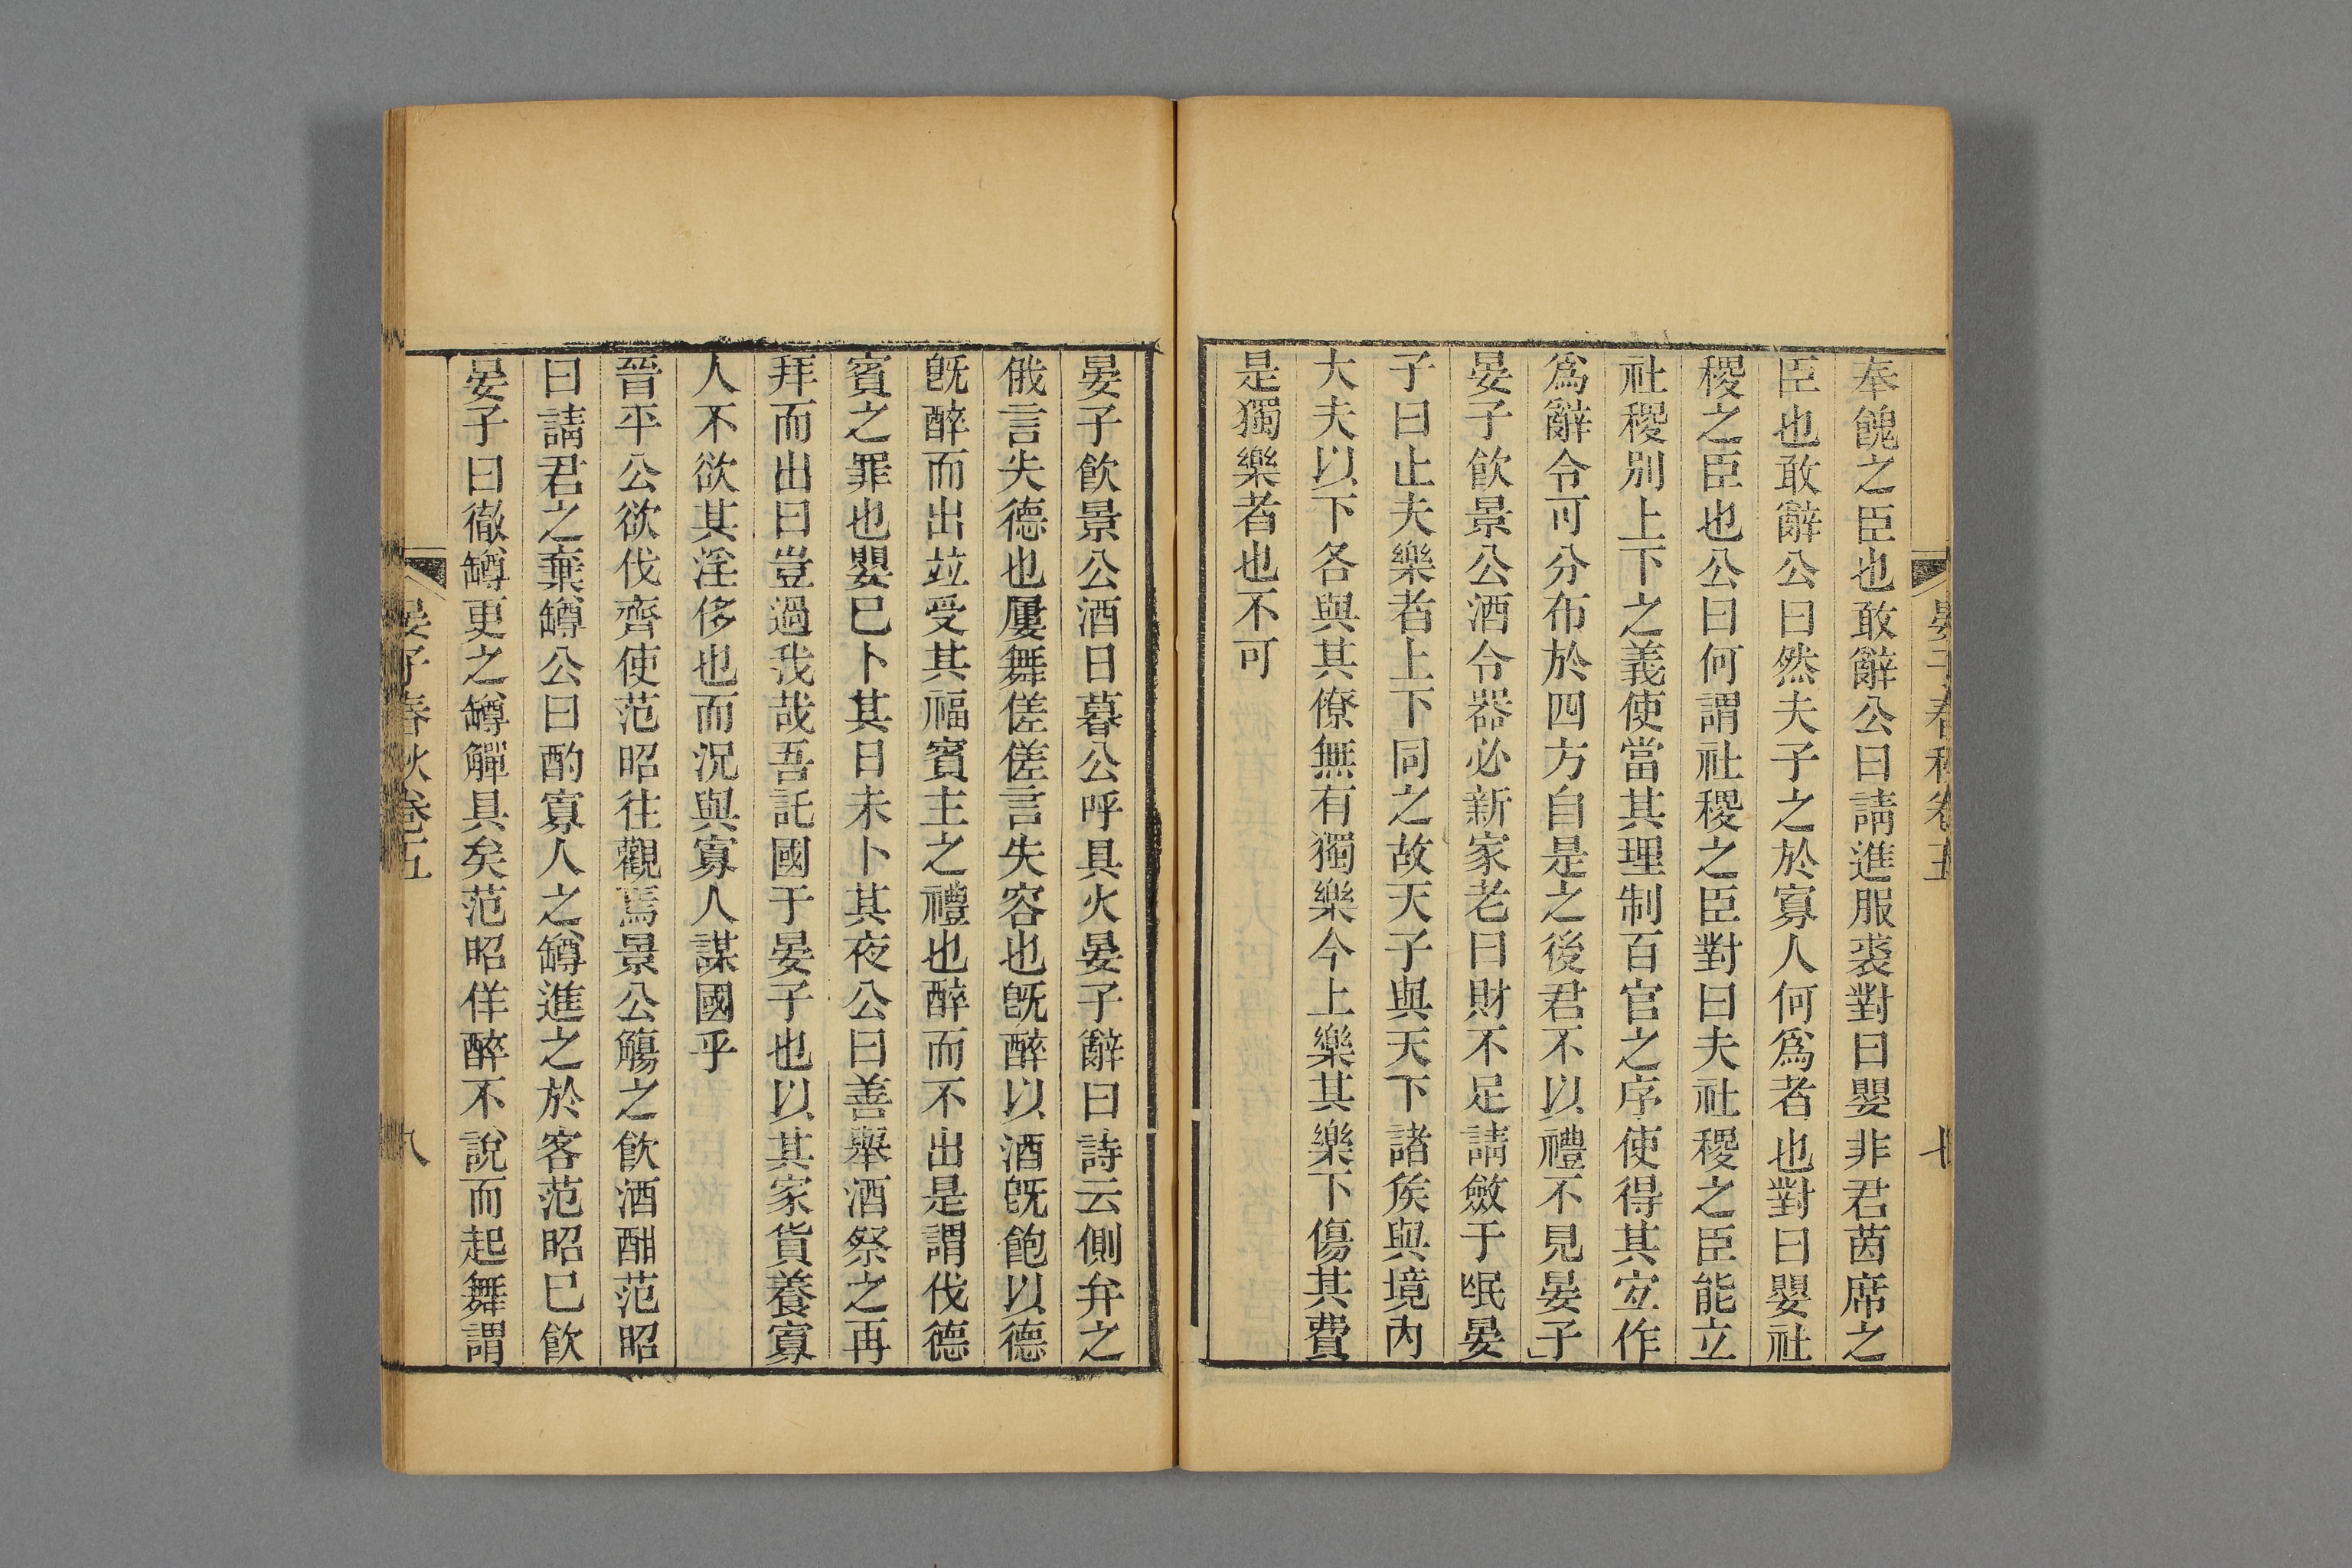 奉餽之臣也敢辭公曰請進服裘對曰嬰非君茵席之
臣也敢辭公曰然夫子之於寡人何爲者也對曰嬰社
稷之臣也公曰何謂社稷之臣對曰夫社稷之臣能立
社稷別上下之義使當其理制百官之序使得其宐作
爲辭令可分布於四方自是之後君不以禮不見晏子
晏子飲景公酒令器必新家老曰財不足請斂于氓晏
子曰止夫樂者上下同之故天子與天下諸矦與境內
大夫以下各與其僚無有獨樂今上樂其樂下傷其費
是獨樂者也不可
晏子春秋卷五
七
晏子飲景公酒日暮公呼具火晏子辭曰詩云側弁之
俄言失德也屢舞傞傞言失容也旣醉以酒旣飽以德
旣醉而出竝受其福賓主之禮也醉而不出是謂伐德
賓之罪也嬰已卜其日未卜其夜公曰善舉酒祭之再
拜而出曰豈過我哉吾託國于晏子也以其家貨養寡
人不欲其淫侈也而況與寡人謀國乎
晉平公欲伐齊使范昭往觀焉景公觴之飲酒酣范昭
曰請君之棄罇公曰酌寡人之罇進之於客范昭已飲
晏子曰徹罇更之罇觶具矣范昭佯醉不說而起舞謂
晏子春秋卷五
八